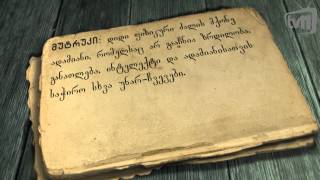 მუტრუკი: დიდი ფიზიკური ძალის მქონე
ადამიანი, რომელსაც არ გააჩნია ზრდილობა,
განათლება, ინტელექტი და ადამიანისათვის
საჭირო სხვა უნარ-ჩვევები.